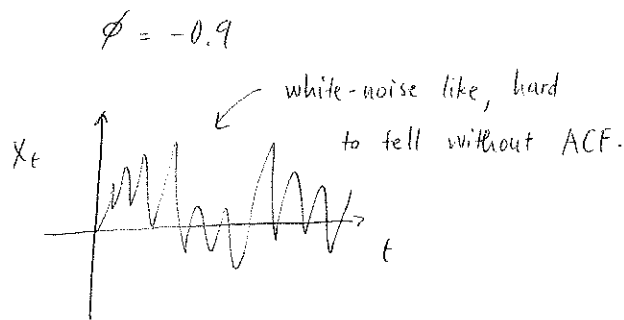 ϕ = -0.9
white-noise like, hard
to tell without ACF.
Xₜ
t